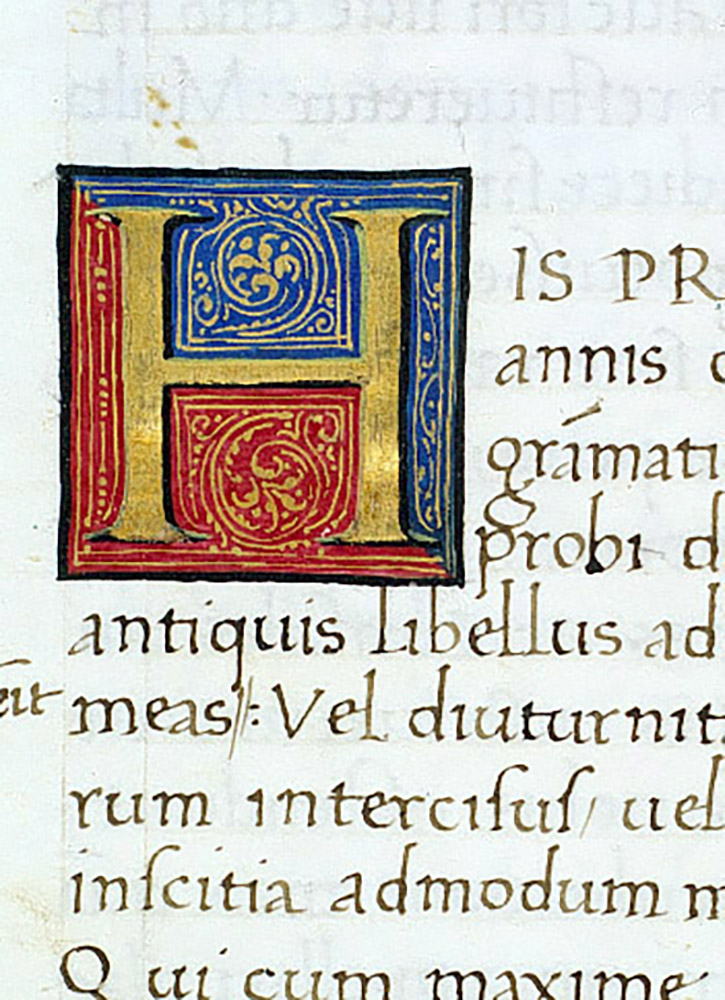 HIS PR
annis
grámati
Probi d
antiquis libellus ad
meas: Vel diuturnit
rum interciſuſ/ uel
inſcitia admodum m
Qui cum maxime